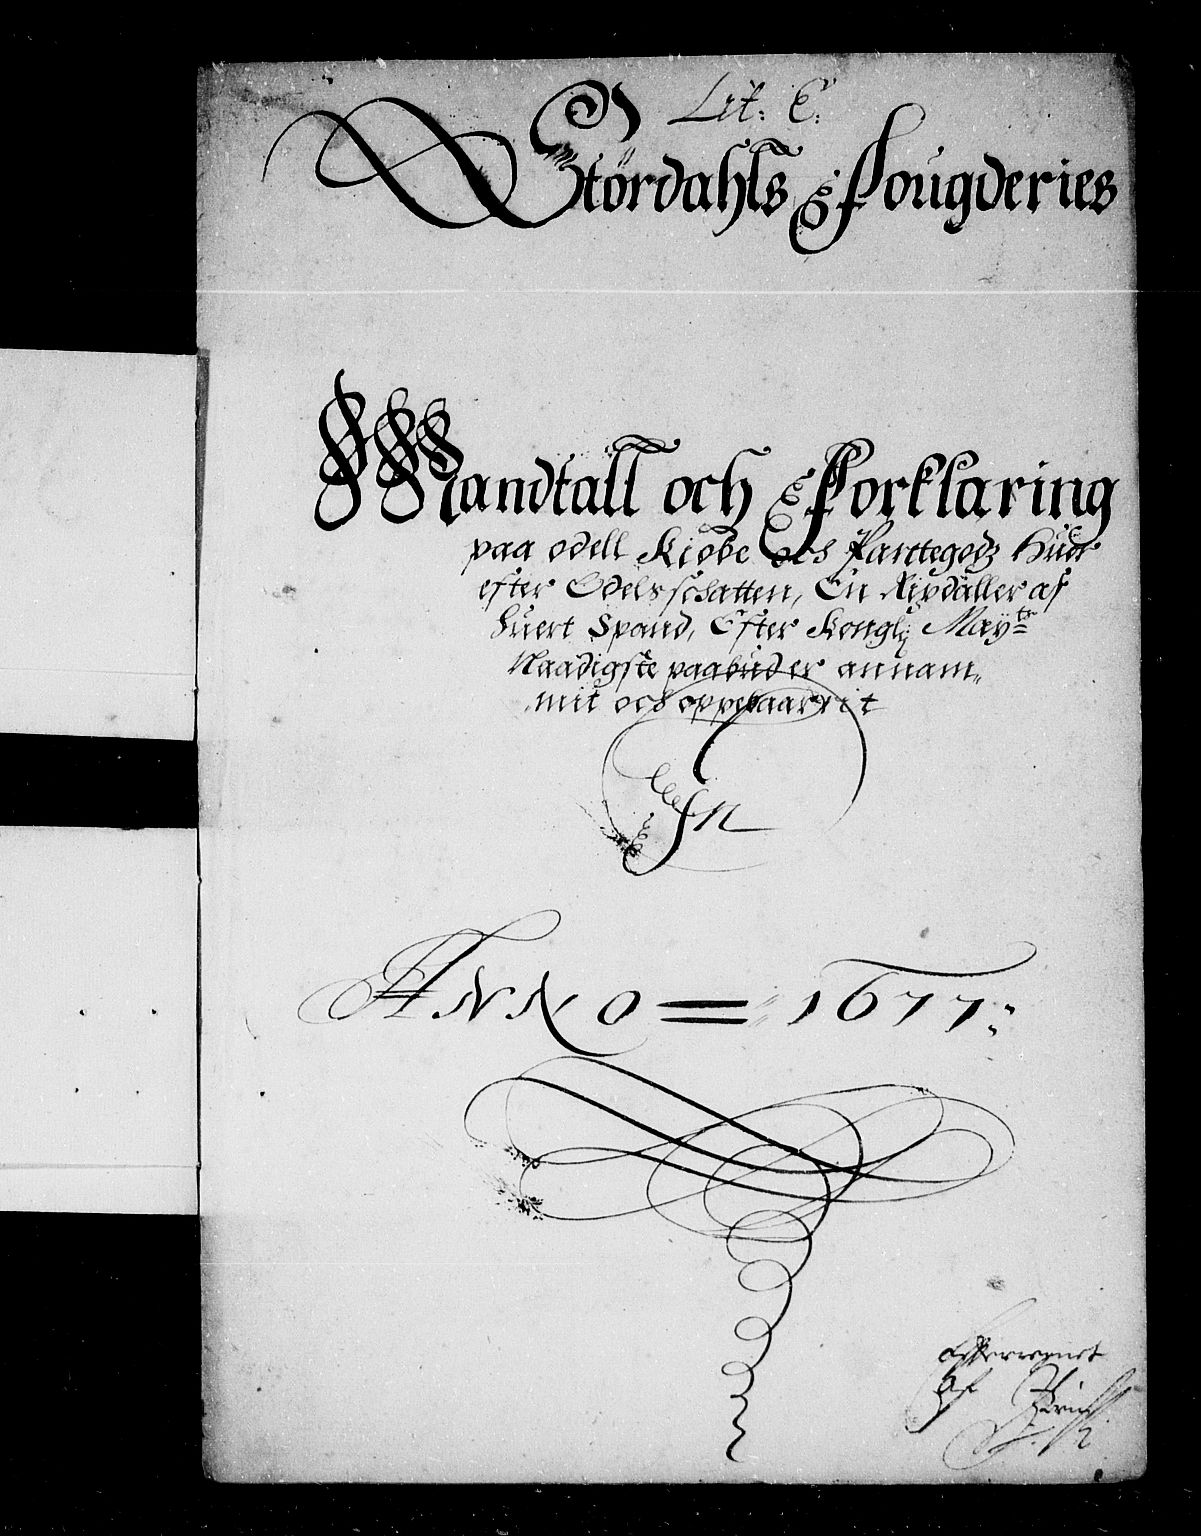 Lit: C:
Stördahls Fougderies
Mandtall och Forklaring
paa odell Kiöbe och Panttegodz Huor
efter Odelsschatten, En Rixdaller af
huert Spand, Efter Konglig Mayts
Naadigste paabud er annam„
mit och oppebaarrit
In
ANNO = 1677:
Efterregnet
Af